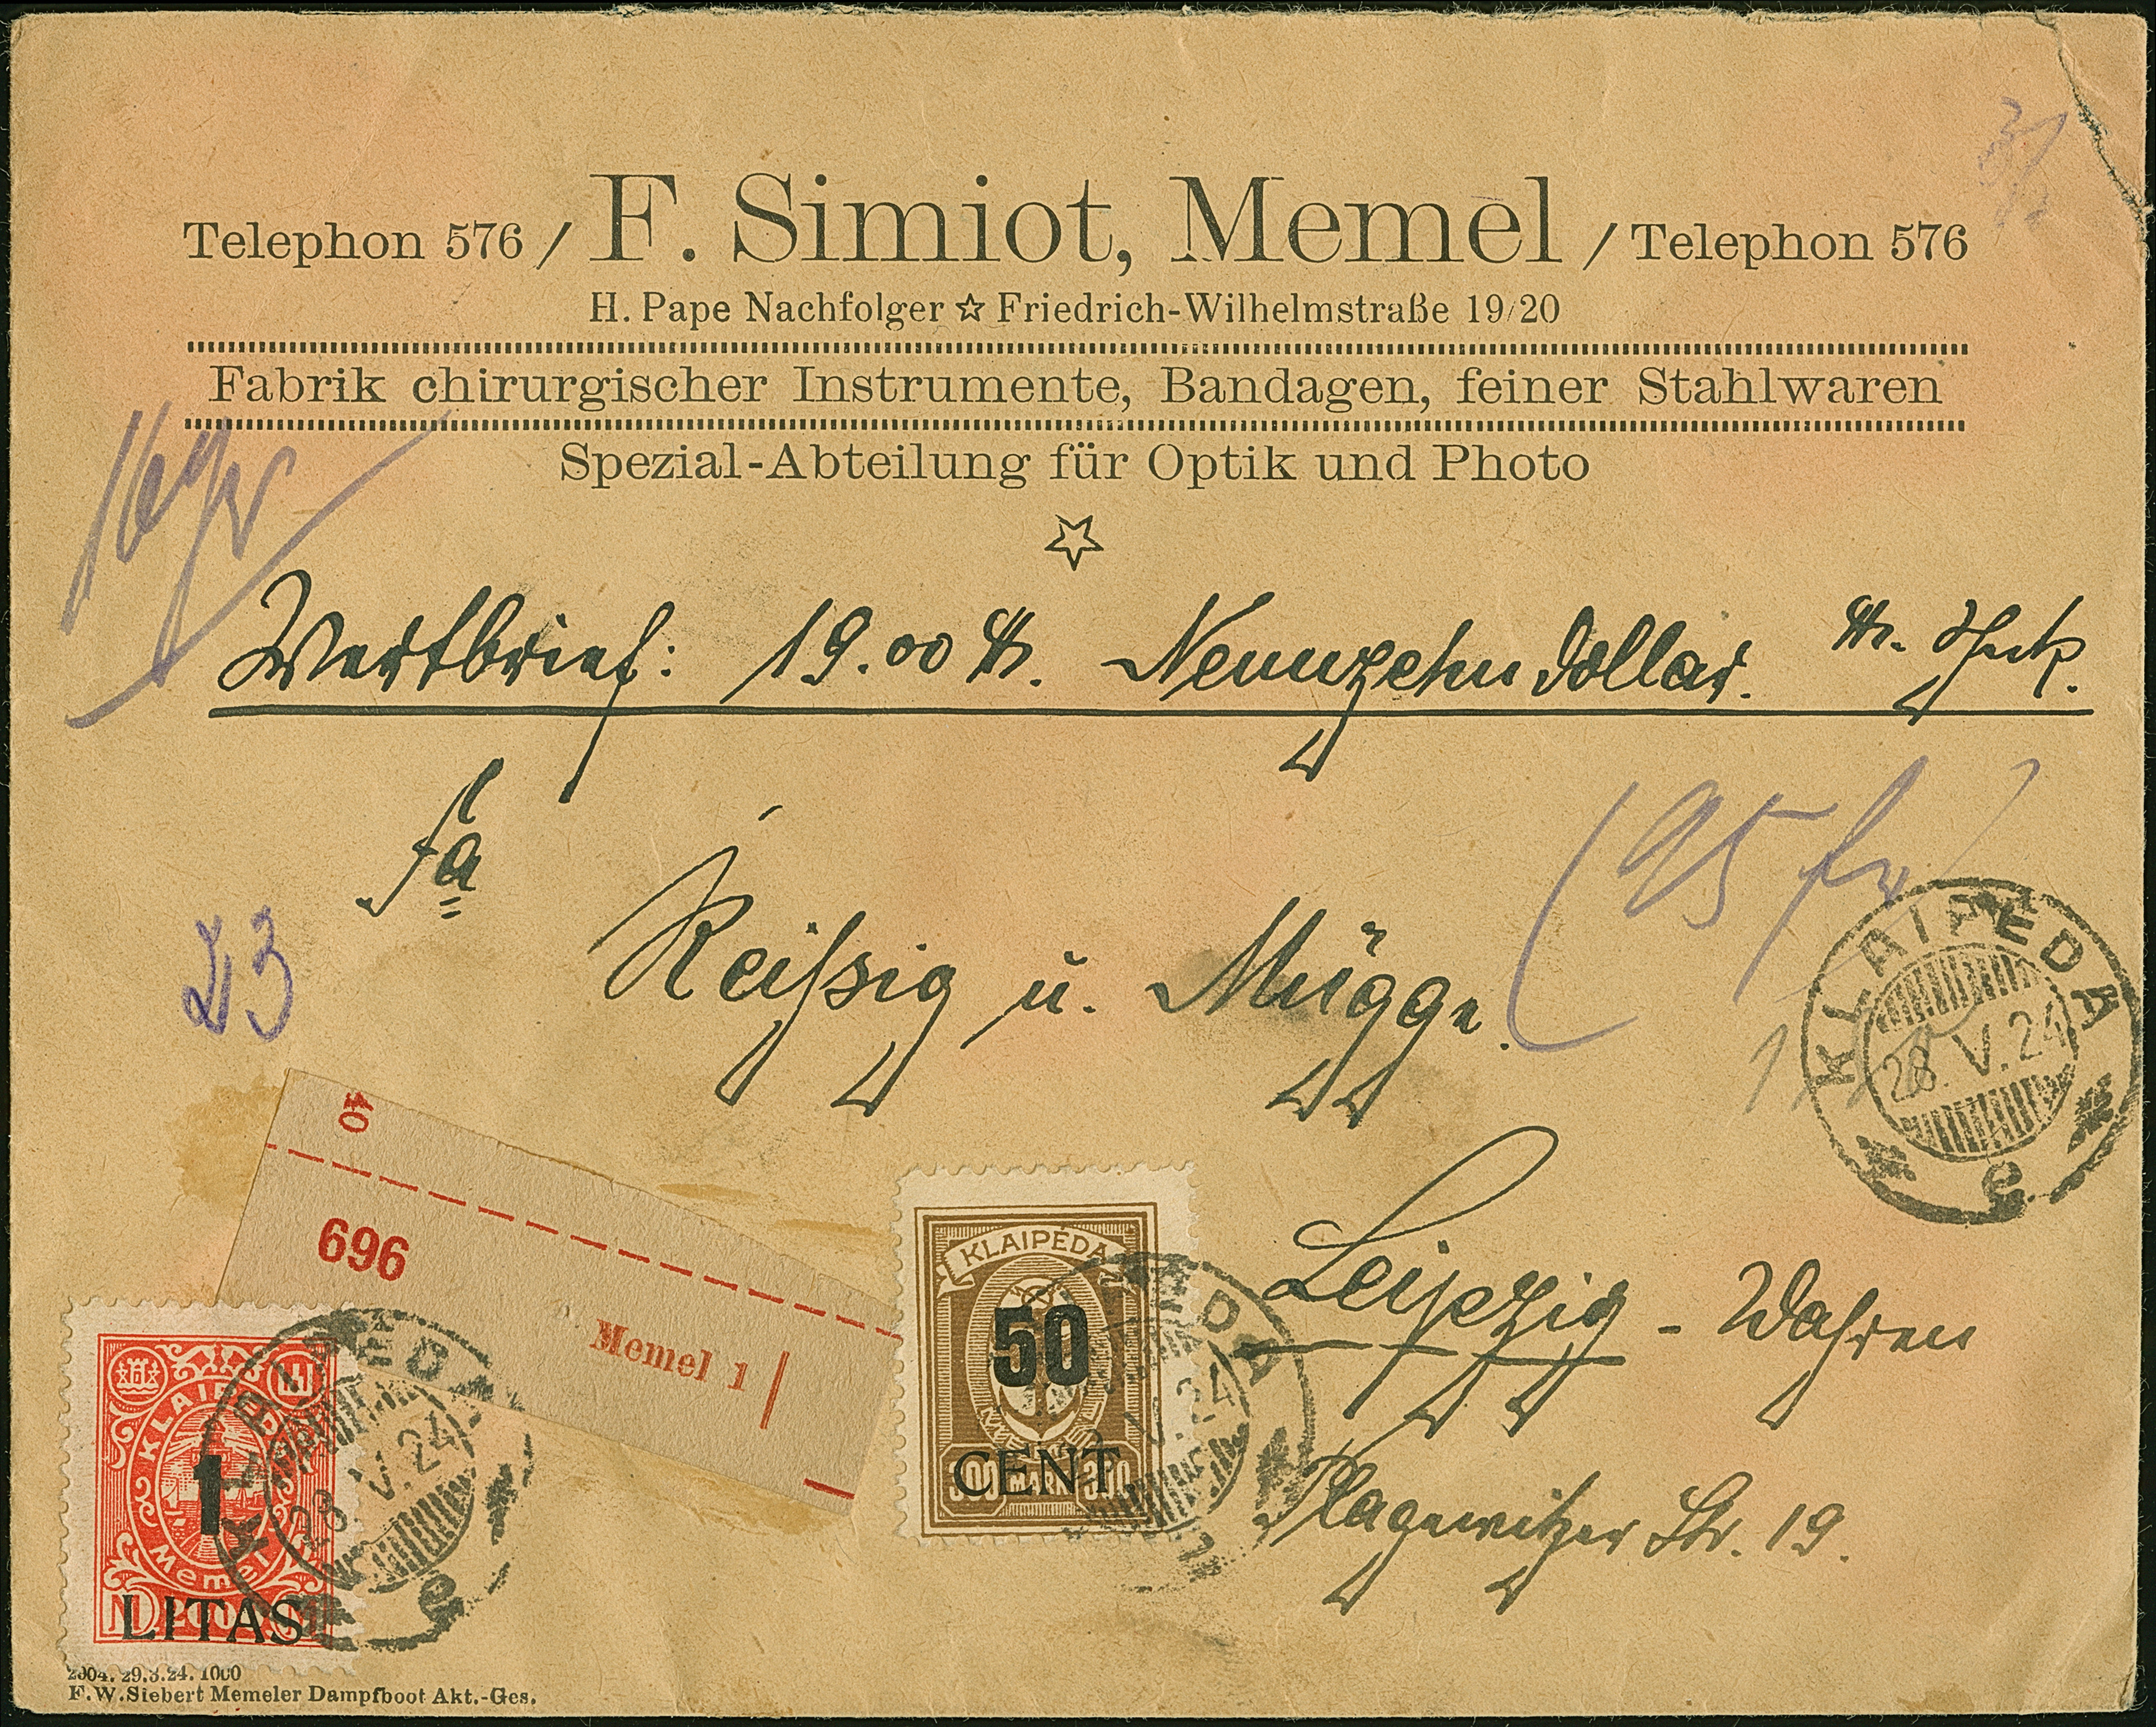 Telephon 576 / F. Simiot, Memel / Telephon 576
H. Pape Nachfolger ☆ Friedrich-Wilhelmstraße 19/20
Fabrik chirurgischer Instrumente, Bandagen, feiner Stahlwaren
Spezial-Abteilung für Optik und Photo
16 gr
Wertbrief: 19.00 $. Neunzehn Dollar.
(95 fr)
Fa
Reißig u. Mügge.
KLAIPEDA
28.V.24
2
40
696
Memel 1
KLAIPÉDA
50
CENT
300 MARK 300
Leipzig - Wahren
Plagewitzer Str. 19.
KLAIPEDA
1
Memel
LITAS
KLAIPEDA
28.V.24
2
KLAIPEDA
V.24
2
2004. 29.3.24. 1000
F.W.Siebert Memeler Dampfboot Akt.-Ges.